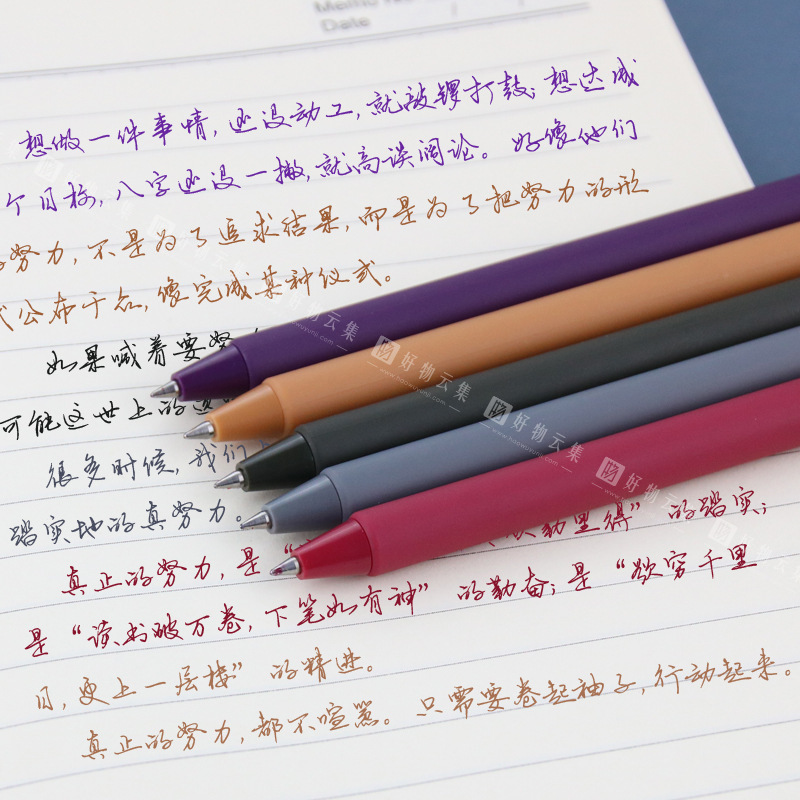 Memo No
Date / /
想做一件事情,还没动工,就敲锣打鼓;想达成
个目标,八字还没一撇,就高谈阔论。好像他们
努力,不是为了追求结果,而是为了把努力的形
式公布于众,像完成某种仪式。
如果喊着要努
可能这世上的
很多时候,我们
踏实地的真努力。
真正的努力,是“ 勤里得”的踏实;
是“读书破万卷,下笔如有神”的勤奋;是“欲穷千里
目,更上一层楼”的精进。
真正的努力,都不喧嚣。只需要卷起袖子,行动起来。
好物云集
www.haowuyunji.com
好物云集
www.haowuyunji.com
好物云集
www.haowuyunji.com
好物云集
www.haowuyunji.com